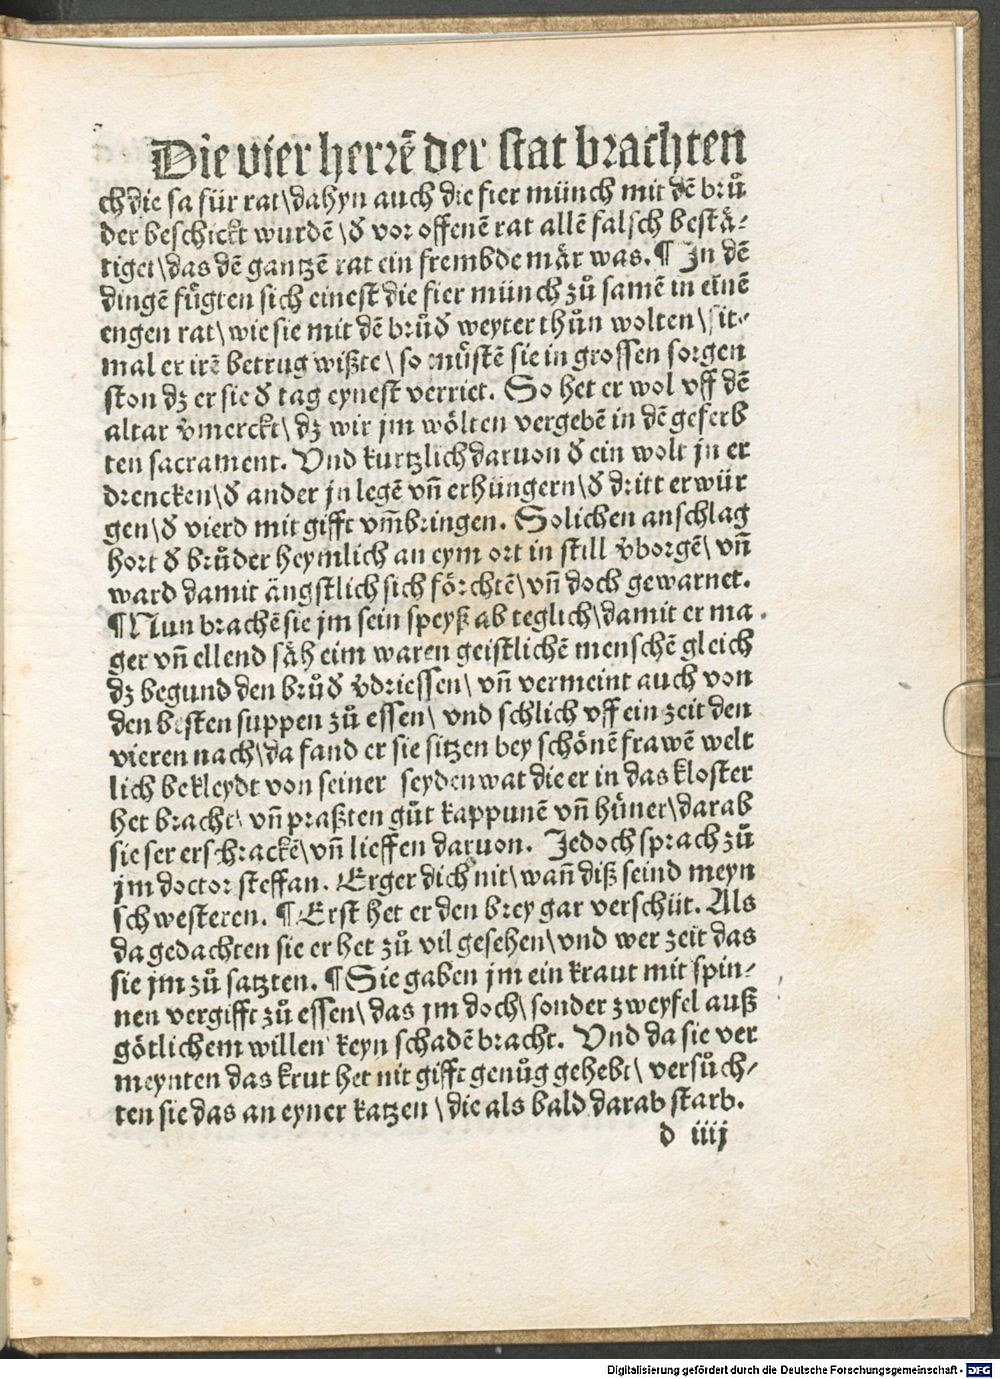 Die vier herrē der stat brachten
ch die sa für rat\dahyn auch die fier münch mit dē brů
der beschickt wurdē \ď vor offenē rat allē falsch bestä-
tiget\das dē gantzē rat ein frembde mär was. ¶ In dē
dingē fůgten sich einest die fier münch zů samē in einē
engen rat\ wie sie mit dē brůď weyter thůn wolten\ sit-
mal er irē betrug wißte \ so müstē sie in grossen sorgen
ston dz er sie ď tag eynest verriet. So het er wol vff dē
altar v̄merckt\ dz wir jm wölten vergebē in dē geferb
ten sacrament. Vnd kurtzlich daruon ď ein wolt jn er
drencken\ď ander jn legē vñ erhüngern\ď dritt erwür
gen\ď vierd mit gifft vm̄bringen. Solichen anschlag
hort ď brůder heymlich an eym ort in still v̄borgē\ vñ
ward damit ängstlich sich förchtē\vñ doch gewarnet.
¶Nun brachē sie jm sein speyß ab teglich\damit er ma
ger vñ ellend säh eim waren geistlichē menschē gleich
dz begund den brůď v̄driessen\ vñ vermeint auch von
den besten suppen zů essen\ vnd schlich vff ein zeit den
vieren nach\da fand er sie sitzen bey schönē frawē welt
lich bekleydt von seiner seydenwat die er in das kloster
het bracht\ vñ praßten gůt kappunē vñ hüner\darab
sie ser erschrackē\vñ lieffen daruon. Jedoch sprach zů
jm doctor steffan. Erger dich nit\wañ diß seind meyn
schwesteren. ¶Erst het er den brey gar verschüt. Als
da gedachten sie er het zů vil gesehen\vnd wer zeit das
sie jm zů satzten. ¶Sie gaben jm ein kraut mit spin-
nen vergifft zů essen\das jm doch\sonder zweyfel auß
götlichem willen keyn schadē bracht. Vnd da sie ver
meynten das krut het nit gifft genůg gehebt\ versůch-
ten sie das an eyner katzen \die als bald darab starb.
d iiij
Digitalisierung gefördert durch die Deutsche Forschungsgemeinschaft - DFG